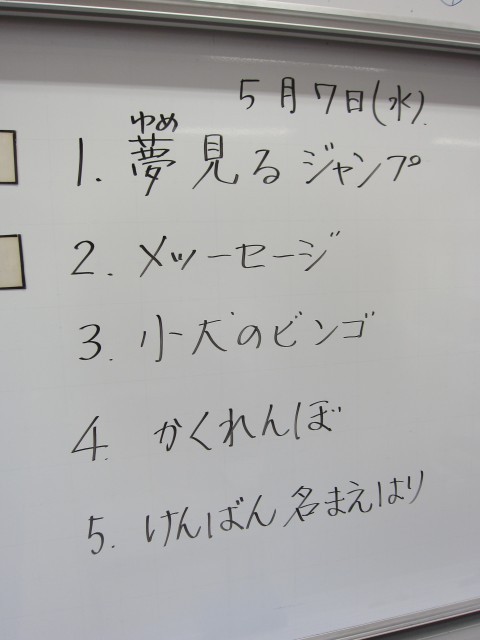 5月7日(水)
ゆめ
1. 夢見るジャンプ
2. メッーセージ
3. 小犬のビンゴ
4. かくれんぼ
5. けんばん名まえはり